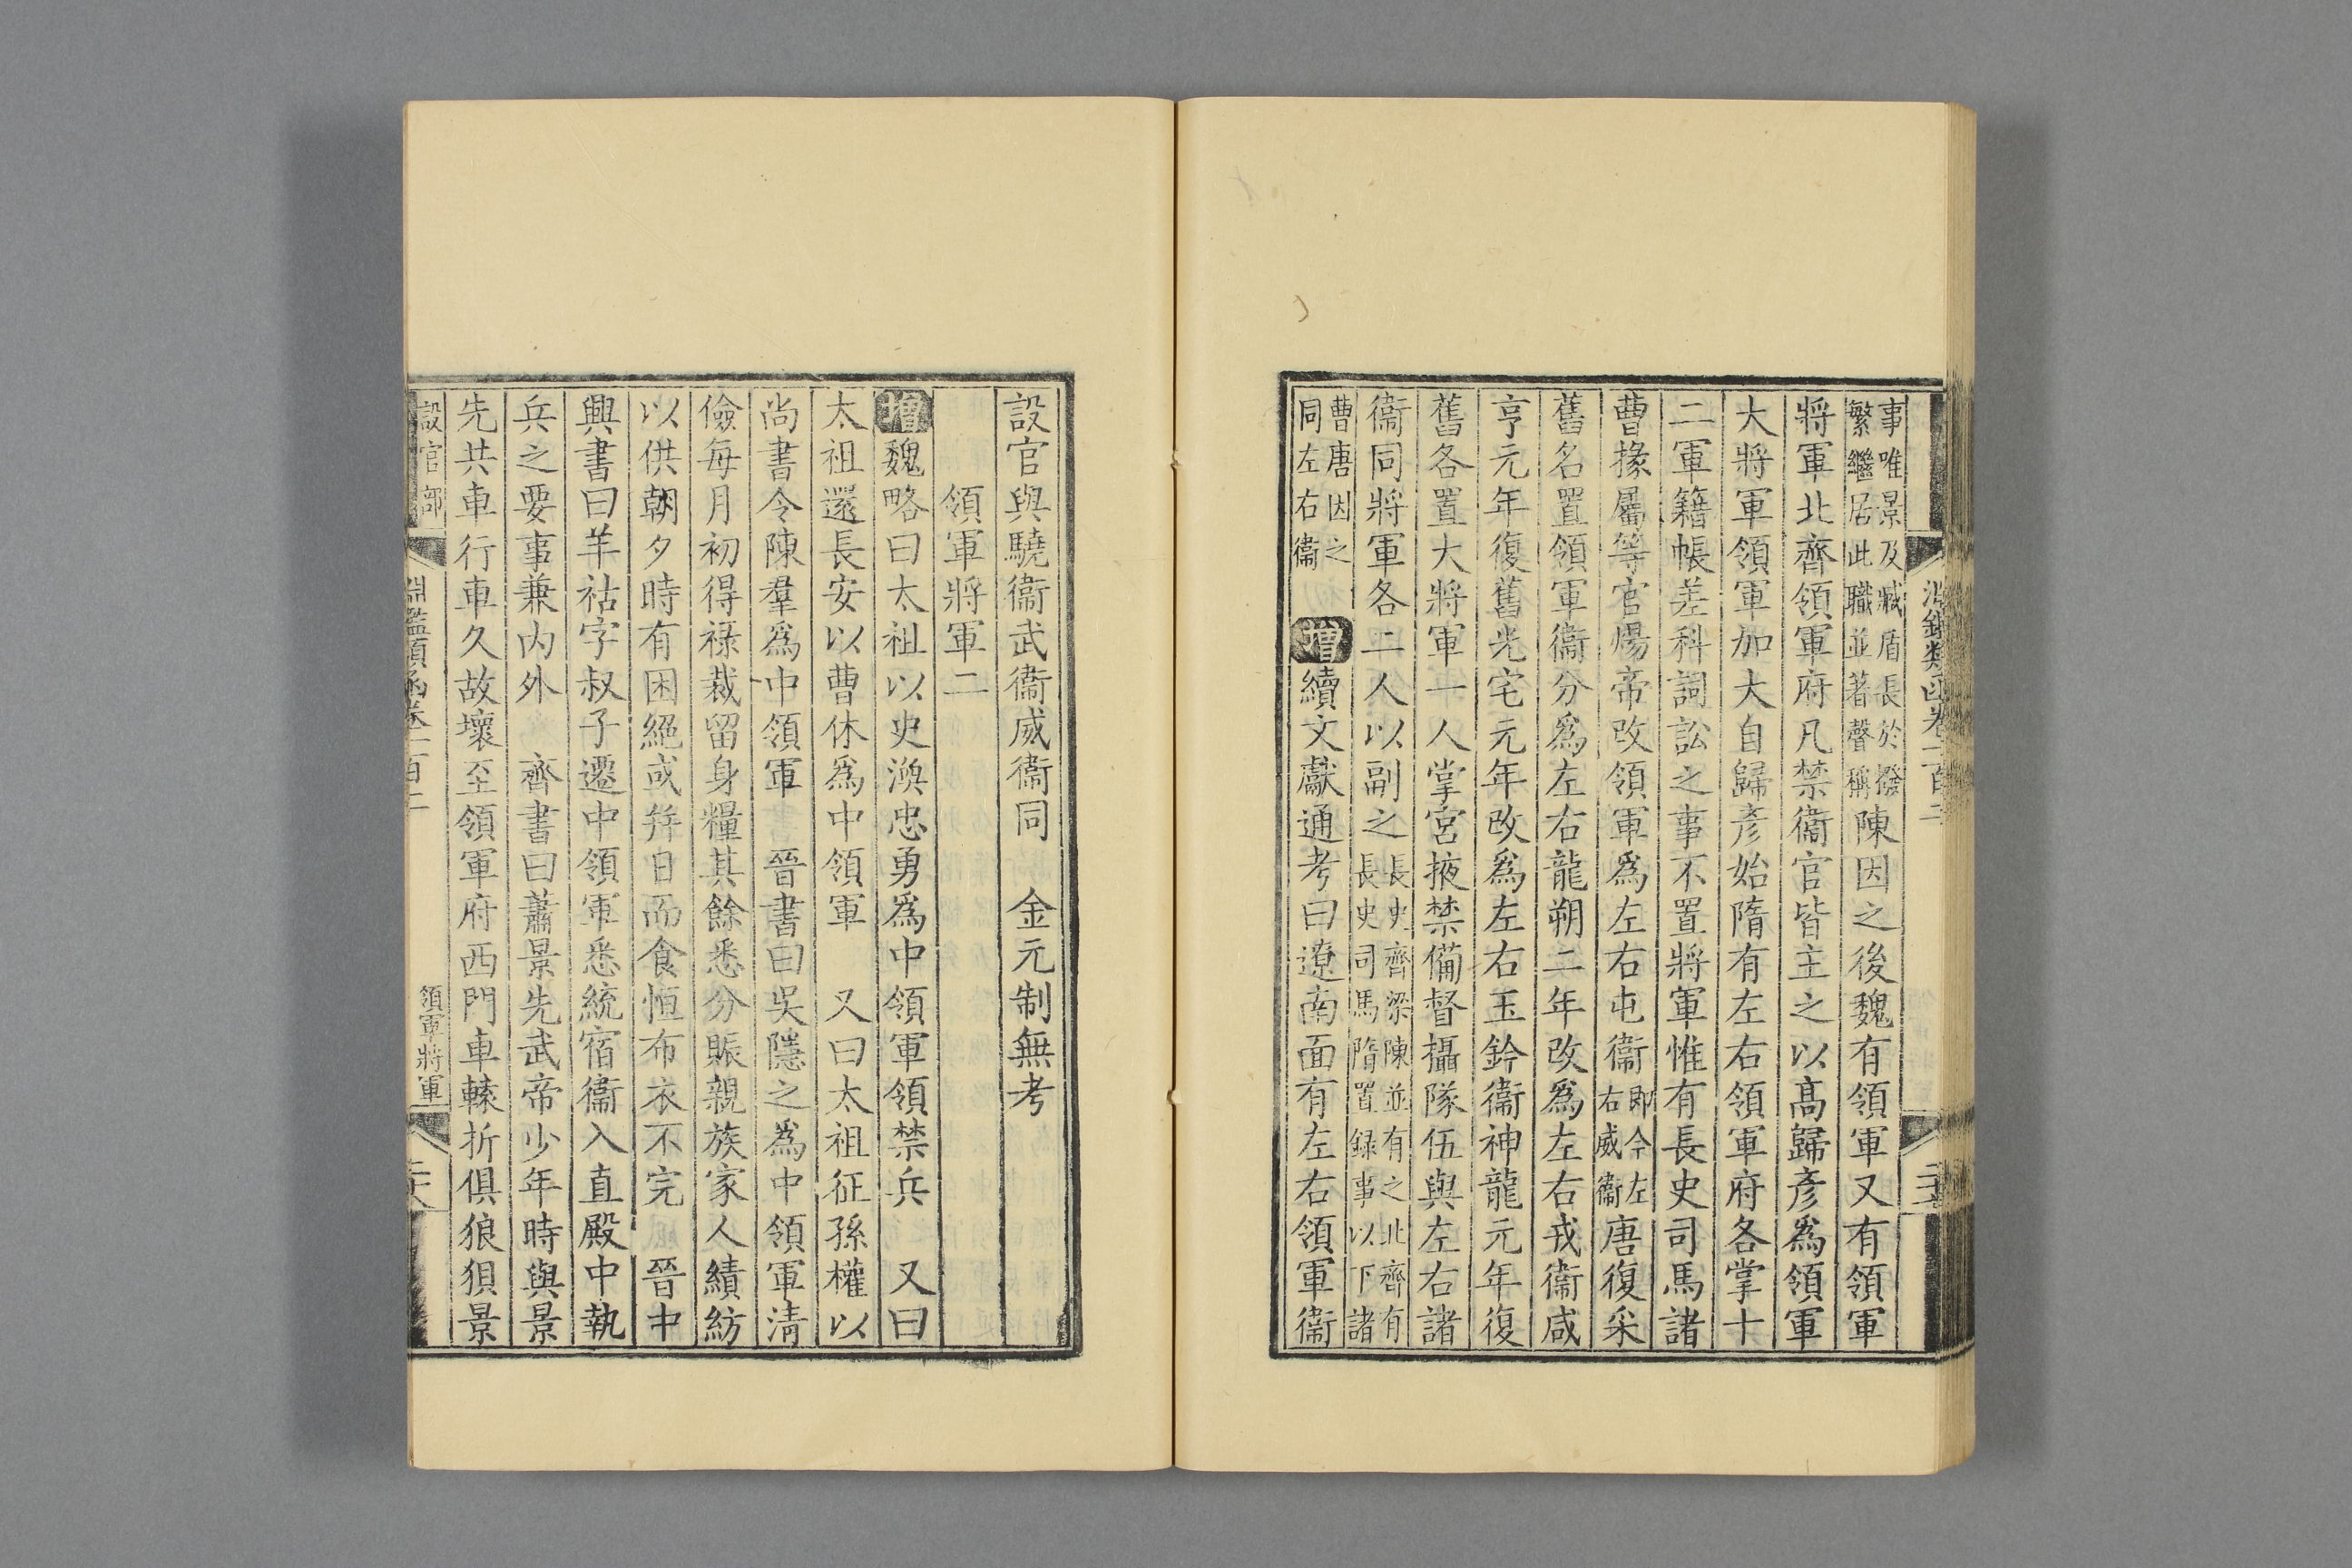 淵鑑類函卷一百二
事唯景及臧盾長於撥
繁繼居此職並著聲稱
陳因之後魏有領軍又有領軍
將軍北齊領軍府凡禁衞官皆主之以高歸彥爲領軍
大將軍領軍加大自歸彥始隋有左右領軍府各掌十
二軍籍帳差科詞訟之事不置將軍惟有長史司馬諸
曹掾屬等官煬帝改領軍爲左右屯衞
即今左
右威衞
唐復采
舊名置領軍衞分爲左右龍朔二年改爲左右戎衞咸
亨元年復舊光宅元年改爲左右玉鈐衞神龍元年復
舊各置大將軍一人掌宮掖禁備督攝隊伍與左右諸
衞同將軍各二人以副之
長史齊梁陳並有之北齊有
長史司馬隋置錄事以下諸
曹唐因之
同左右衞
增續文獻通考曰遼南面有左右領軍衞
設官與驍衞武衞威衞同　金元制無考
領軍將軍二
增魏略曰太祖以史渙忠勇爲中領軍領禁兵　又曰
太祖還長安以曹休爲中領軍　又曰太祖征孫權以
尚書令陳羣爲中領軍　晉書曰吳隱之爲中領軍清
儉每月初得祿裁留身糧其餘悉分賑親族家人績紡
以供朝夕時有困絕或并日而食恒布衣不完　晉中
興書曰羊祜字叔子遷中領軍悉統宿衞入直殿中執
兵之要事兼內外　齊書曰蕭景先武帝少年時與景
先共車行車久故壞至領軍府西門車轅折俱狼狽景
設官部
淵鑑類函卷一百二
領軍將軍